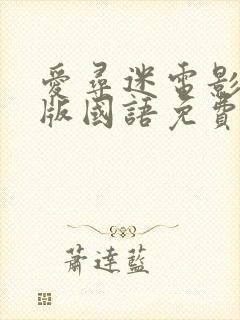 愛尋迷電影
版國語免費
蕭達藍